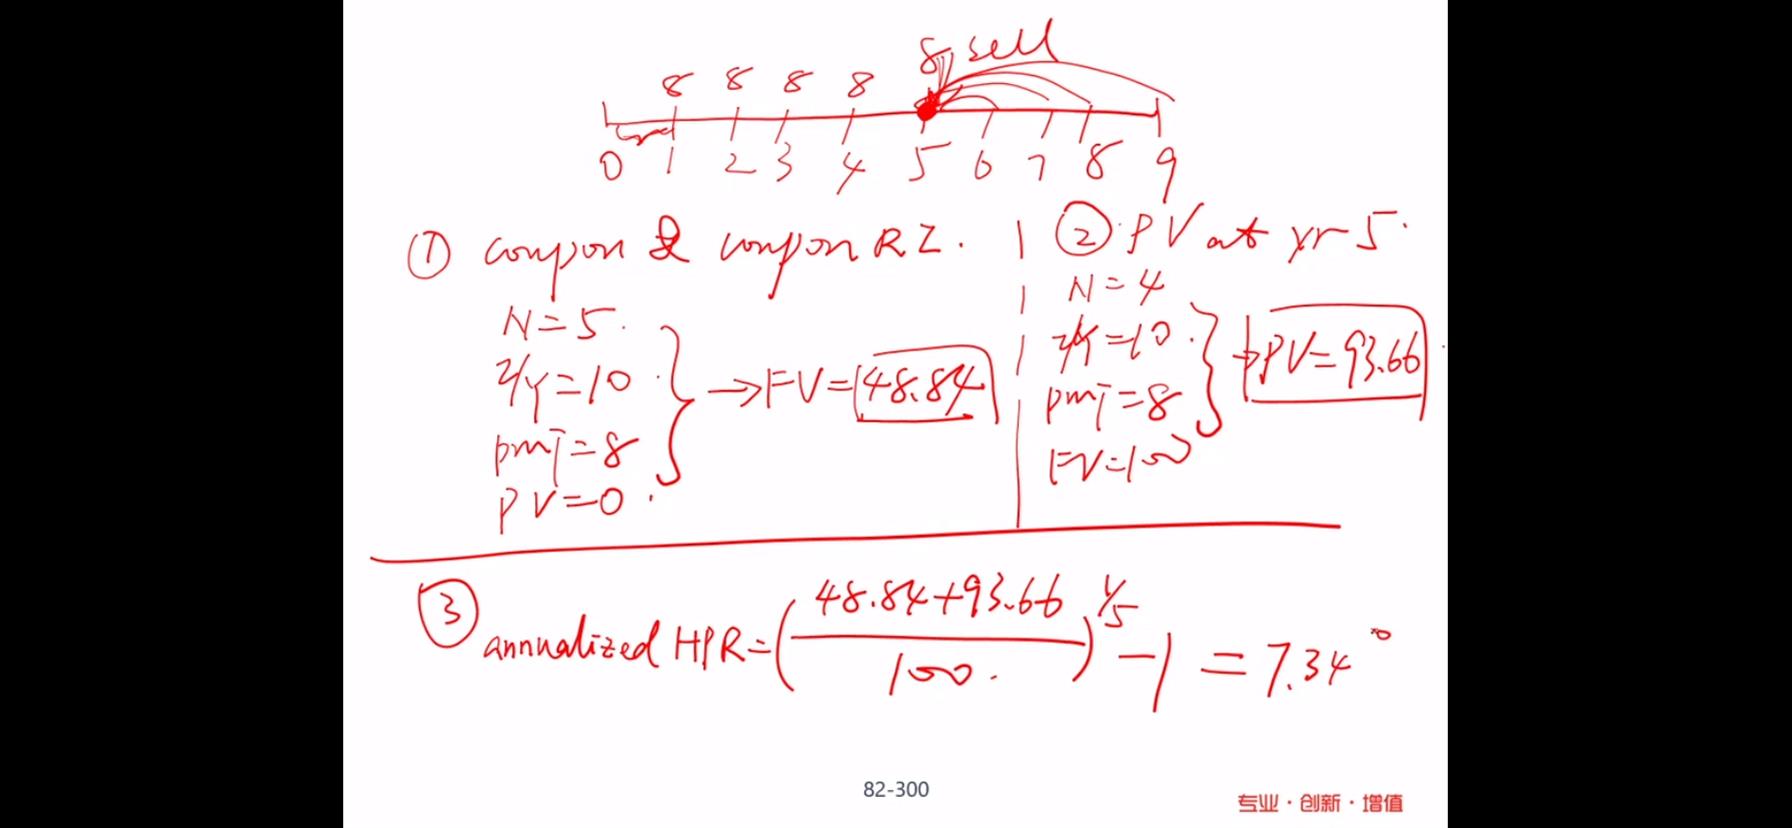 8 sell
8 8 8 8
0 1 2 3 4 5 6 7 8 9
① coupon & coupon RI.
N=5.
I/Y=10
pmT=8
PV=0.
→FV=48.84
② PV at yr 5.
N=4
I/Y=10
pmT=8
FV=100
→PV=93.66
③ annualized HPR=(48.84+93.66
100.
)^1/5 -1 = 7.34
82-300
专业·创新·增值